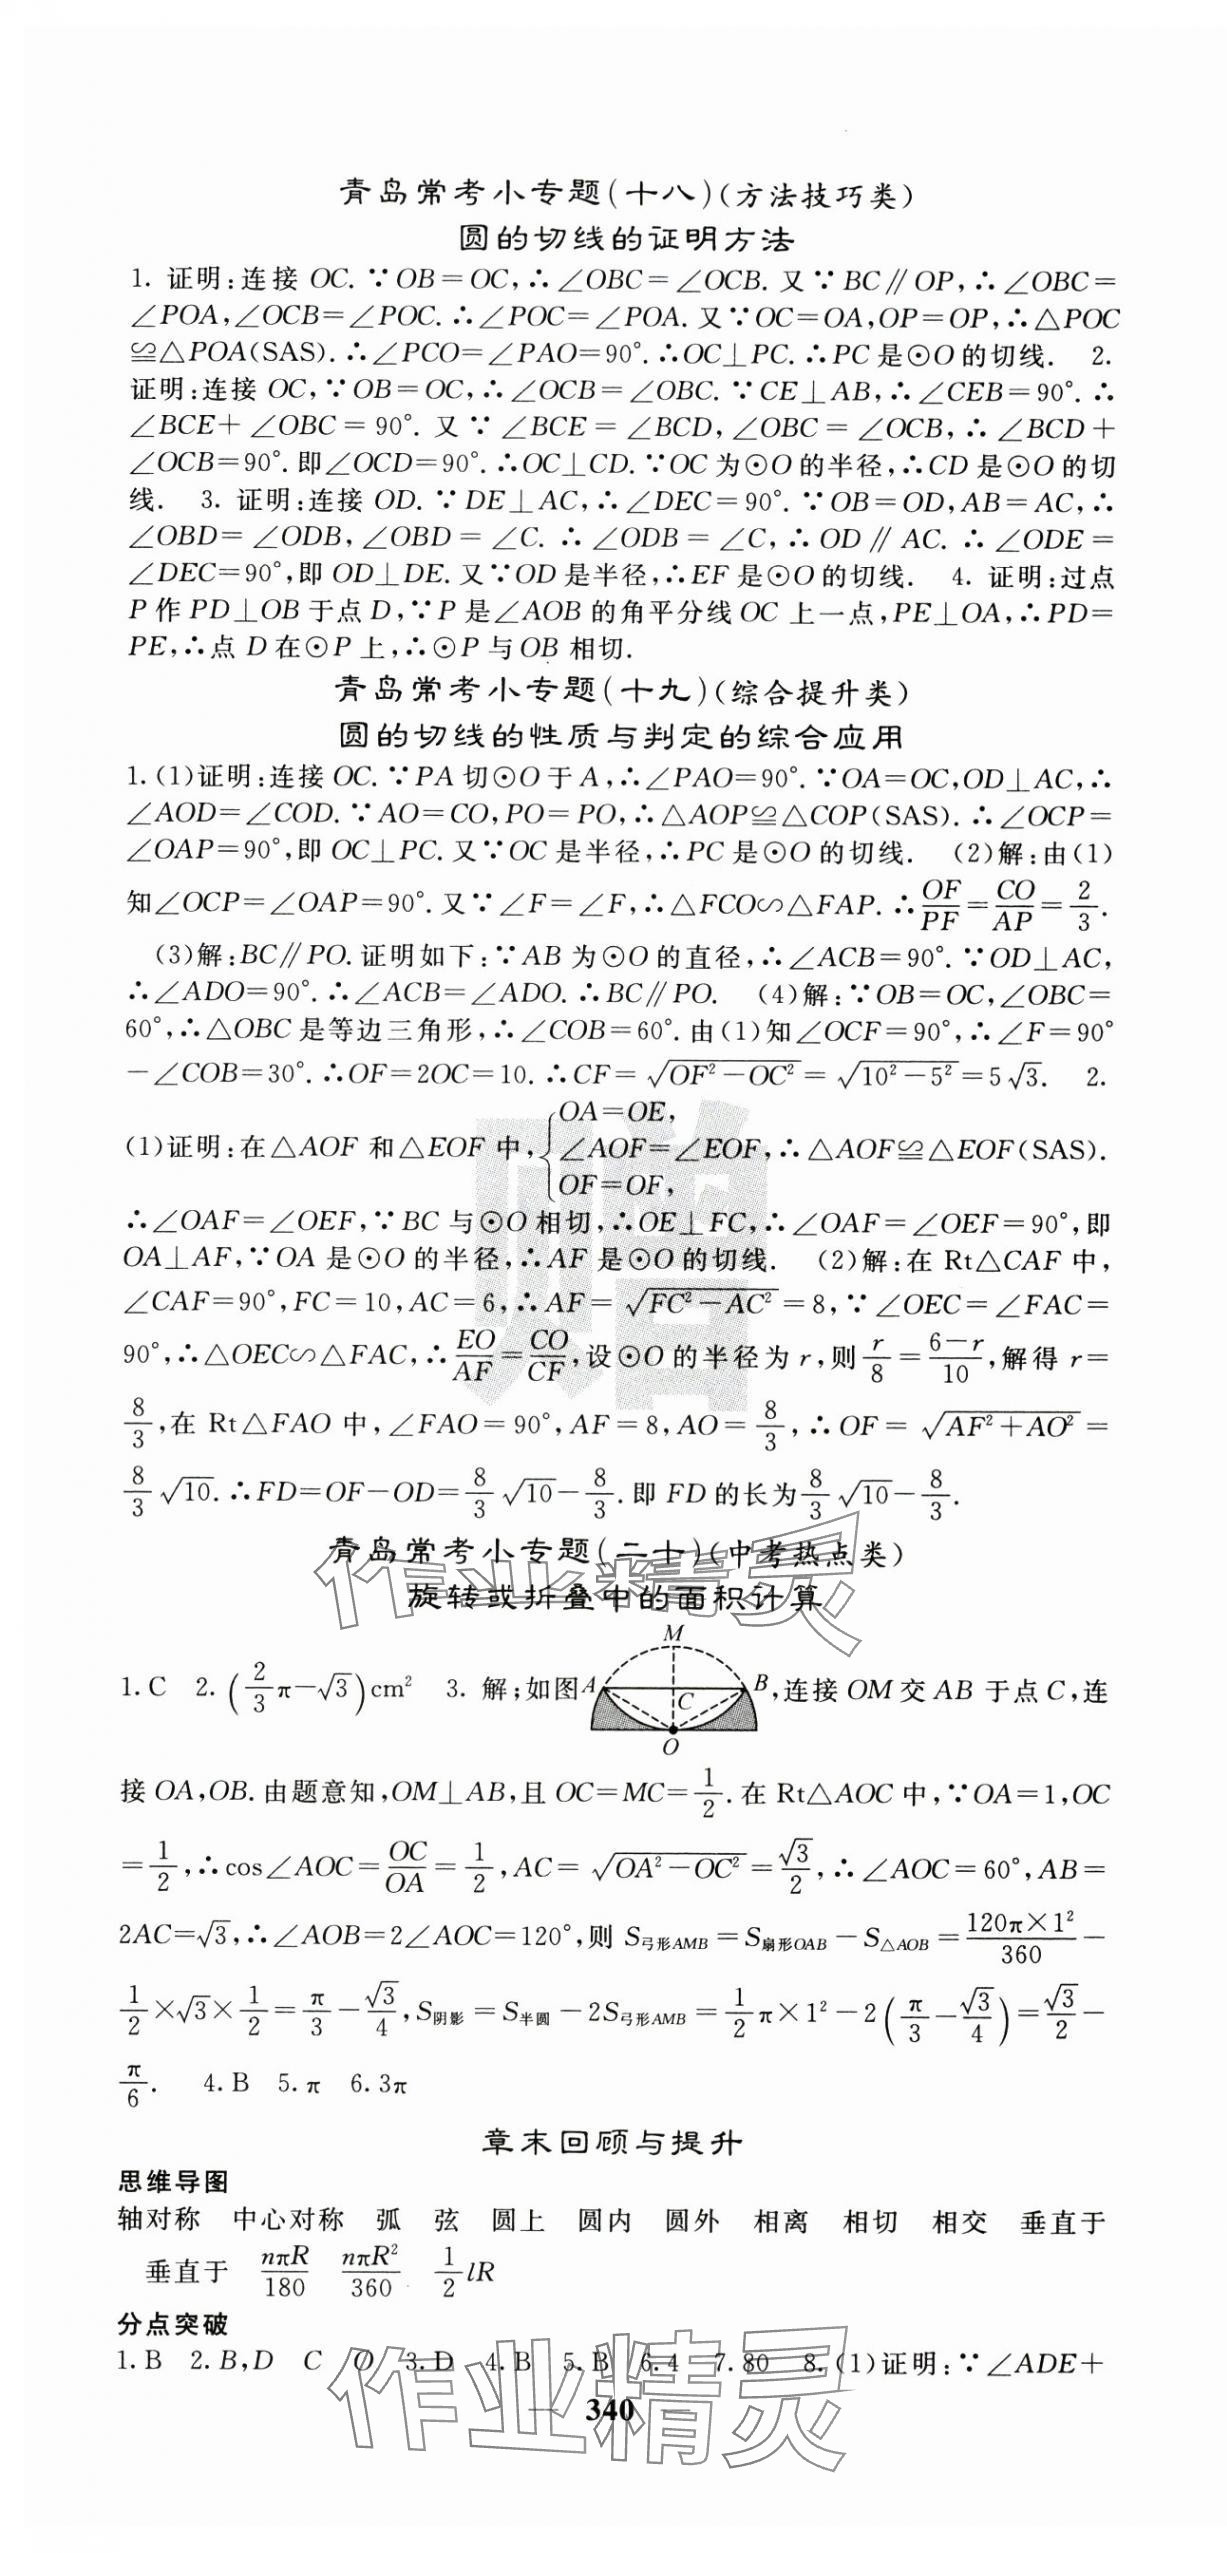 青岛常考小专题(十八)(方法技巧类)
圆的切线的证明方法
1. 证明:连接 OC. ∵OB=OC,∴∠OBC=∠OCB. 又∵BC∥OP,∴∠OBC=
∠POA,∠OCB=∠POC.∴∠POC=∠POA. 又∵OC=OA,OP=OP,∴△POC
≌△POA(SAS).∴∠PCO=∠PAO=90°.∴OC⊥PC.∴PC是⊙O的切线. 2.
证明:连接 OC,∵OB=OC,∴∠OCB=∠OBC. ∵CE⊥AB,∴∠CEB=90°.∴
∠BCE+∠OBC=90°. 又∵∠BCE=∠BCD,∠OBC=∠OCB,∴∠BCD+
∠OCB=90°.即∠OCD=90°.∴OC⊥CD.∵OC为⊙O的半径,∴CD是⊙O的切
线. 3. 证明:连接 OD. ∵DE⊥AC,∴∠DEC=90°.∵OB=OD,AB=AC,∴
∠OBD=∠ODB,∠OBD=∠C. ∴∠ODB=∠C,∴OD∥AC. ∴∠ODE=
∠DEC=90°,即OD⊥DE.又∵OD是半径,∴EF是⊙O的切线. 4. 证明:过点
P作PD⊥OB于点D,∵P是∠AOB的角平分线OC上一点,PE⊥OA,∴PD=
PE,∴点D在⊙P上,∴⊙P与OB相切.
青岛常考小专题(十九)(综合提升类)
圆的切线的性质与判定的综合应用
1.(1)证明:连接OC.∵PA切⊙O于A,∴∠PAO=90°.∵OA=OC,OD⊥AC,∴
∠AOD=∠COD.∵AO=CO,PO=PO,∴△AOP≌△COP(SAS).∴∠OCP=
∠OAP=90°,即OC⊥PC.又∵OC是半径,∴PC是⊙O的切线. (2)解:由(1)
知∠OCP=∠OAP=90°.又∵∠F=∠F,∴△FCO∽△FAP.∴OF/PF=CO/AP=2/3.
(3)解:BC∥PO.证明如下:∵AB为⊙O的直径,∴∠ACB=90°.∵OD⊥AC,
∴∠ADO=90°.∴∠ACB=∠ADO.∴BC∥PO. (4)解:∵OB=OC,∠OBC=
60°,∴△OBC是等边三角形,∴∠COB=60°.由(1)知∠OCF=90°,∴∠F=90°
-∠COB=30°.∴OF=2OC=10.∴CF=√(OF²-OC²)=√(10²-5²)=5√3. 2.
(1)证明:在△AOF和△EOF中,{OA=OE, ∠AOF=∠EOF, OF=OF,∴△AOF≌△EOF(SAS).
∴∠OAF=∠OEF,∵BC与⊙O相切,∴OE⊥FC,∴∠OAF=∠OEF=90°,即
OA⊥AF,∵OA是⊙O的半径,∴AF是⊙O的切线. (2)解:在Rt△CAF中,
∠CAF=90°,FC=10,AC=6,∴AF=√(FC²-AC²)=8,∵∠OEC=∠FAC=
90°,∴△OEC∽△FAC,∴EO/AF=CO/CF,设⊙O的半径为r,则r/8=(6-r)/10,解得r=
8/3,在Rt△FAO中,∠FAO=90°,AF=8,AO=8/3,∴OF=√(AF²+AO²)=
8/3√10.∴FD=OF-OD=8/3√10-8/3.即FD的长为8/3√10-8/3.
青岛常考小专题(二十)(中考热点类)
旋转或折叠中的面积计算
1.C 2.(2/3π-√3)cm² 3. 解;如图A M B C O,连接OM交AB于点C,连
接OA,OB.由题意知,OM⊥AB,且OC=MC=1/2.在Rt△AOC中,∵OA=1,OC
=1/2,∴cos∠AOC=OC/OA=1/2,AC=√(OA²-OC²)=√3/2,∴∠AOC=60°,AB=
2AC=√3,∴∠AOB=2∠AOC=120°,则S弓形AMB=S扇形OAB-S△AOB=120π×1²/360-
1/2×√3×1/2=π/3-√3/4,S阴影=S半圆-2S弓形AMB=1/2π×1²-2(π/3-√3/4)=√3/2-
π/6. 4.B 5.π 6.3π
章末回顾与提升
思维导图
轴对称 中心对称 弧 弦 圆上 圆内 圆外 相离 相切 相交 垂直于
垂直于 nπR/180 nπR²/360 1/2lR
分点突破
1.B 2.B,D C O 3.D 4.B 5.B 6.4 7.80 8.(1)证明:∵∠ADE+
340
赠
作业精灵
作业精灵